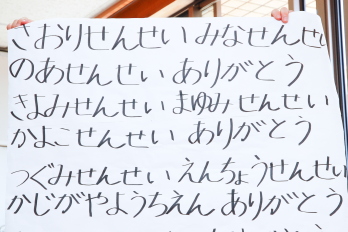 さおりせんせい みなせんせい
のあせんせい ありがとう
きよみせんせい まゆみせんせい
かよこせんせい ありがとう
つぐみせんせい えんちょうせんせい
かじがやようちえん ありがとう